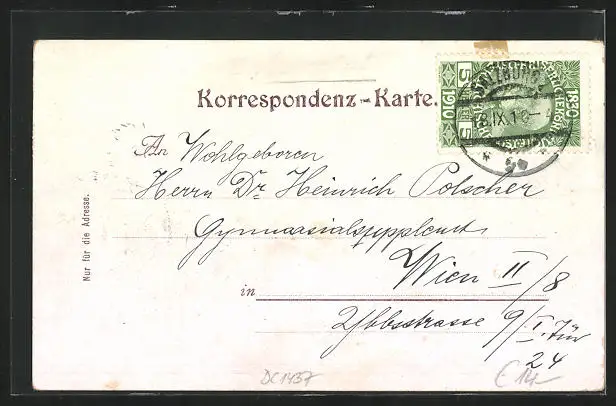 Korrespondenz-Karte.
SALZBURG
8.IX.10
1830 1910
5 5
An Wohlgeboren
Herrn Dr. Heinrich Polscher
Gymnasialsupplent
Nur für die Adresse.
in Wien II/8
Ybbsstrasse 9/I. Tür
24
DC1437
€ 14.-